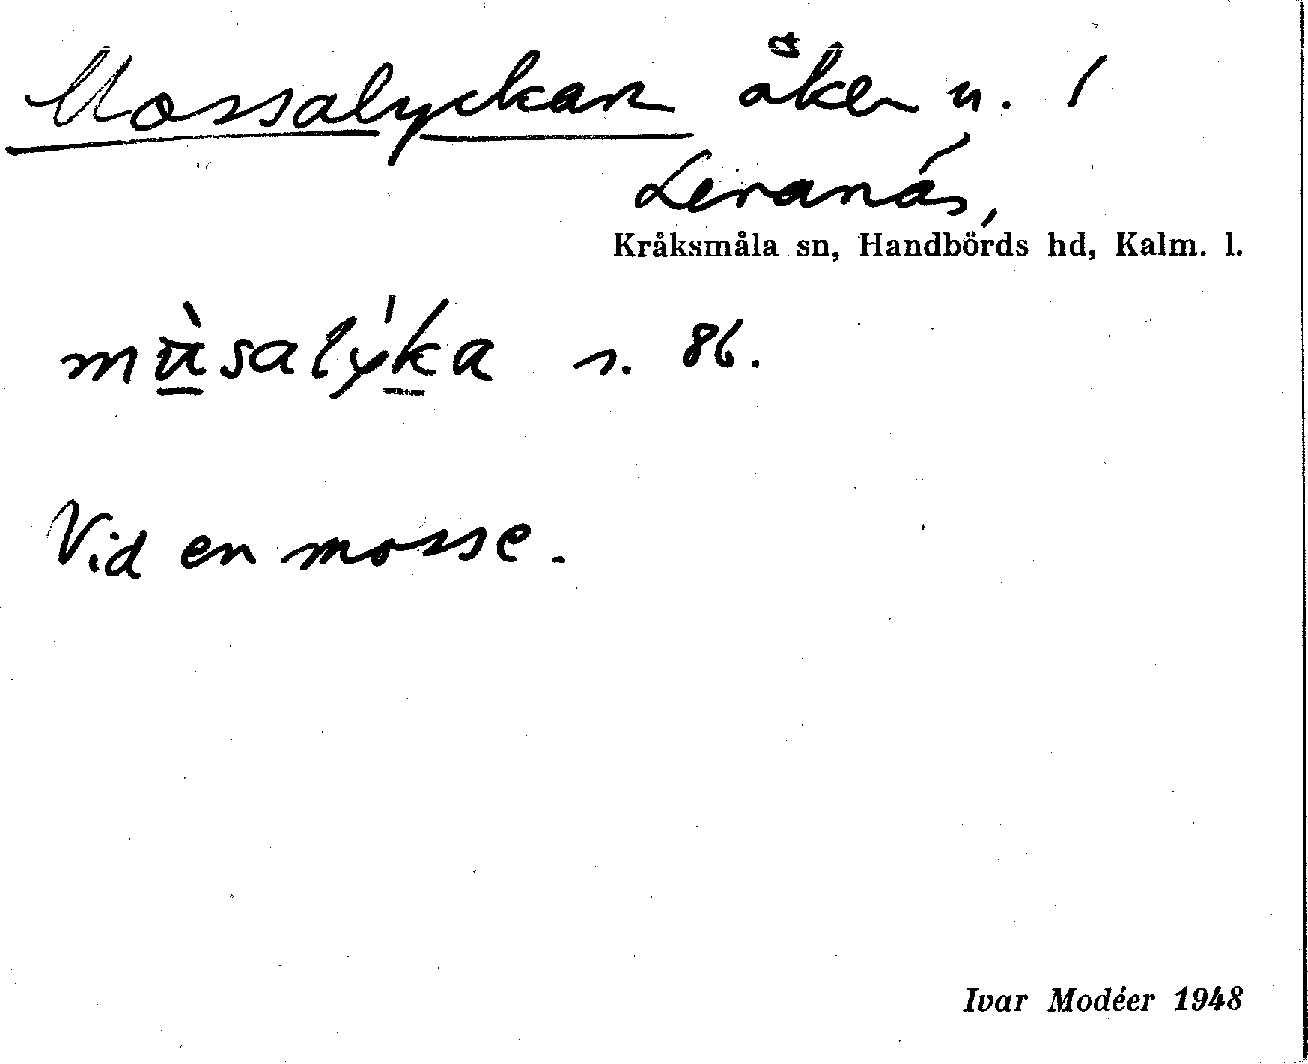 Mossalyckan åker u. 1
Leranäs,
Kråksmåla sn, Handbörds hd, Kalm. l.
mùsalýka s. 86.
Vid en mosse.
Ivar Modéer 1948